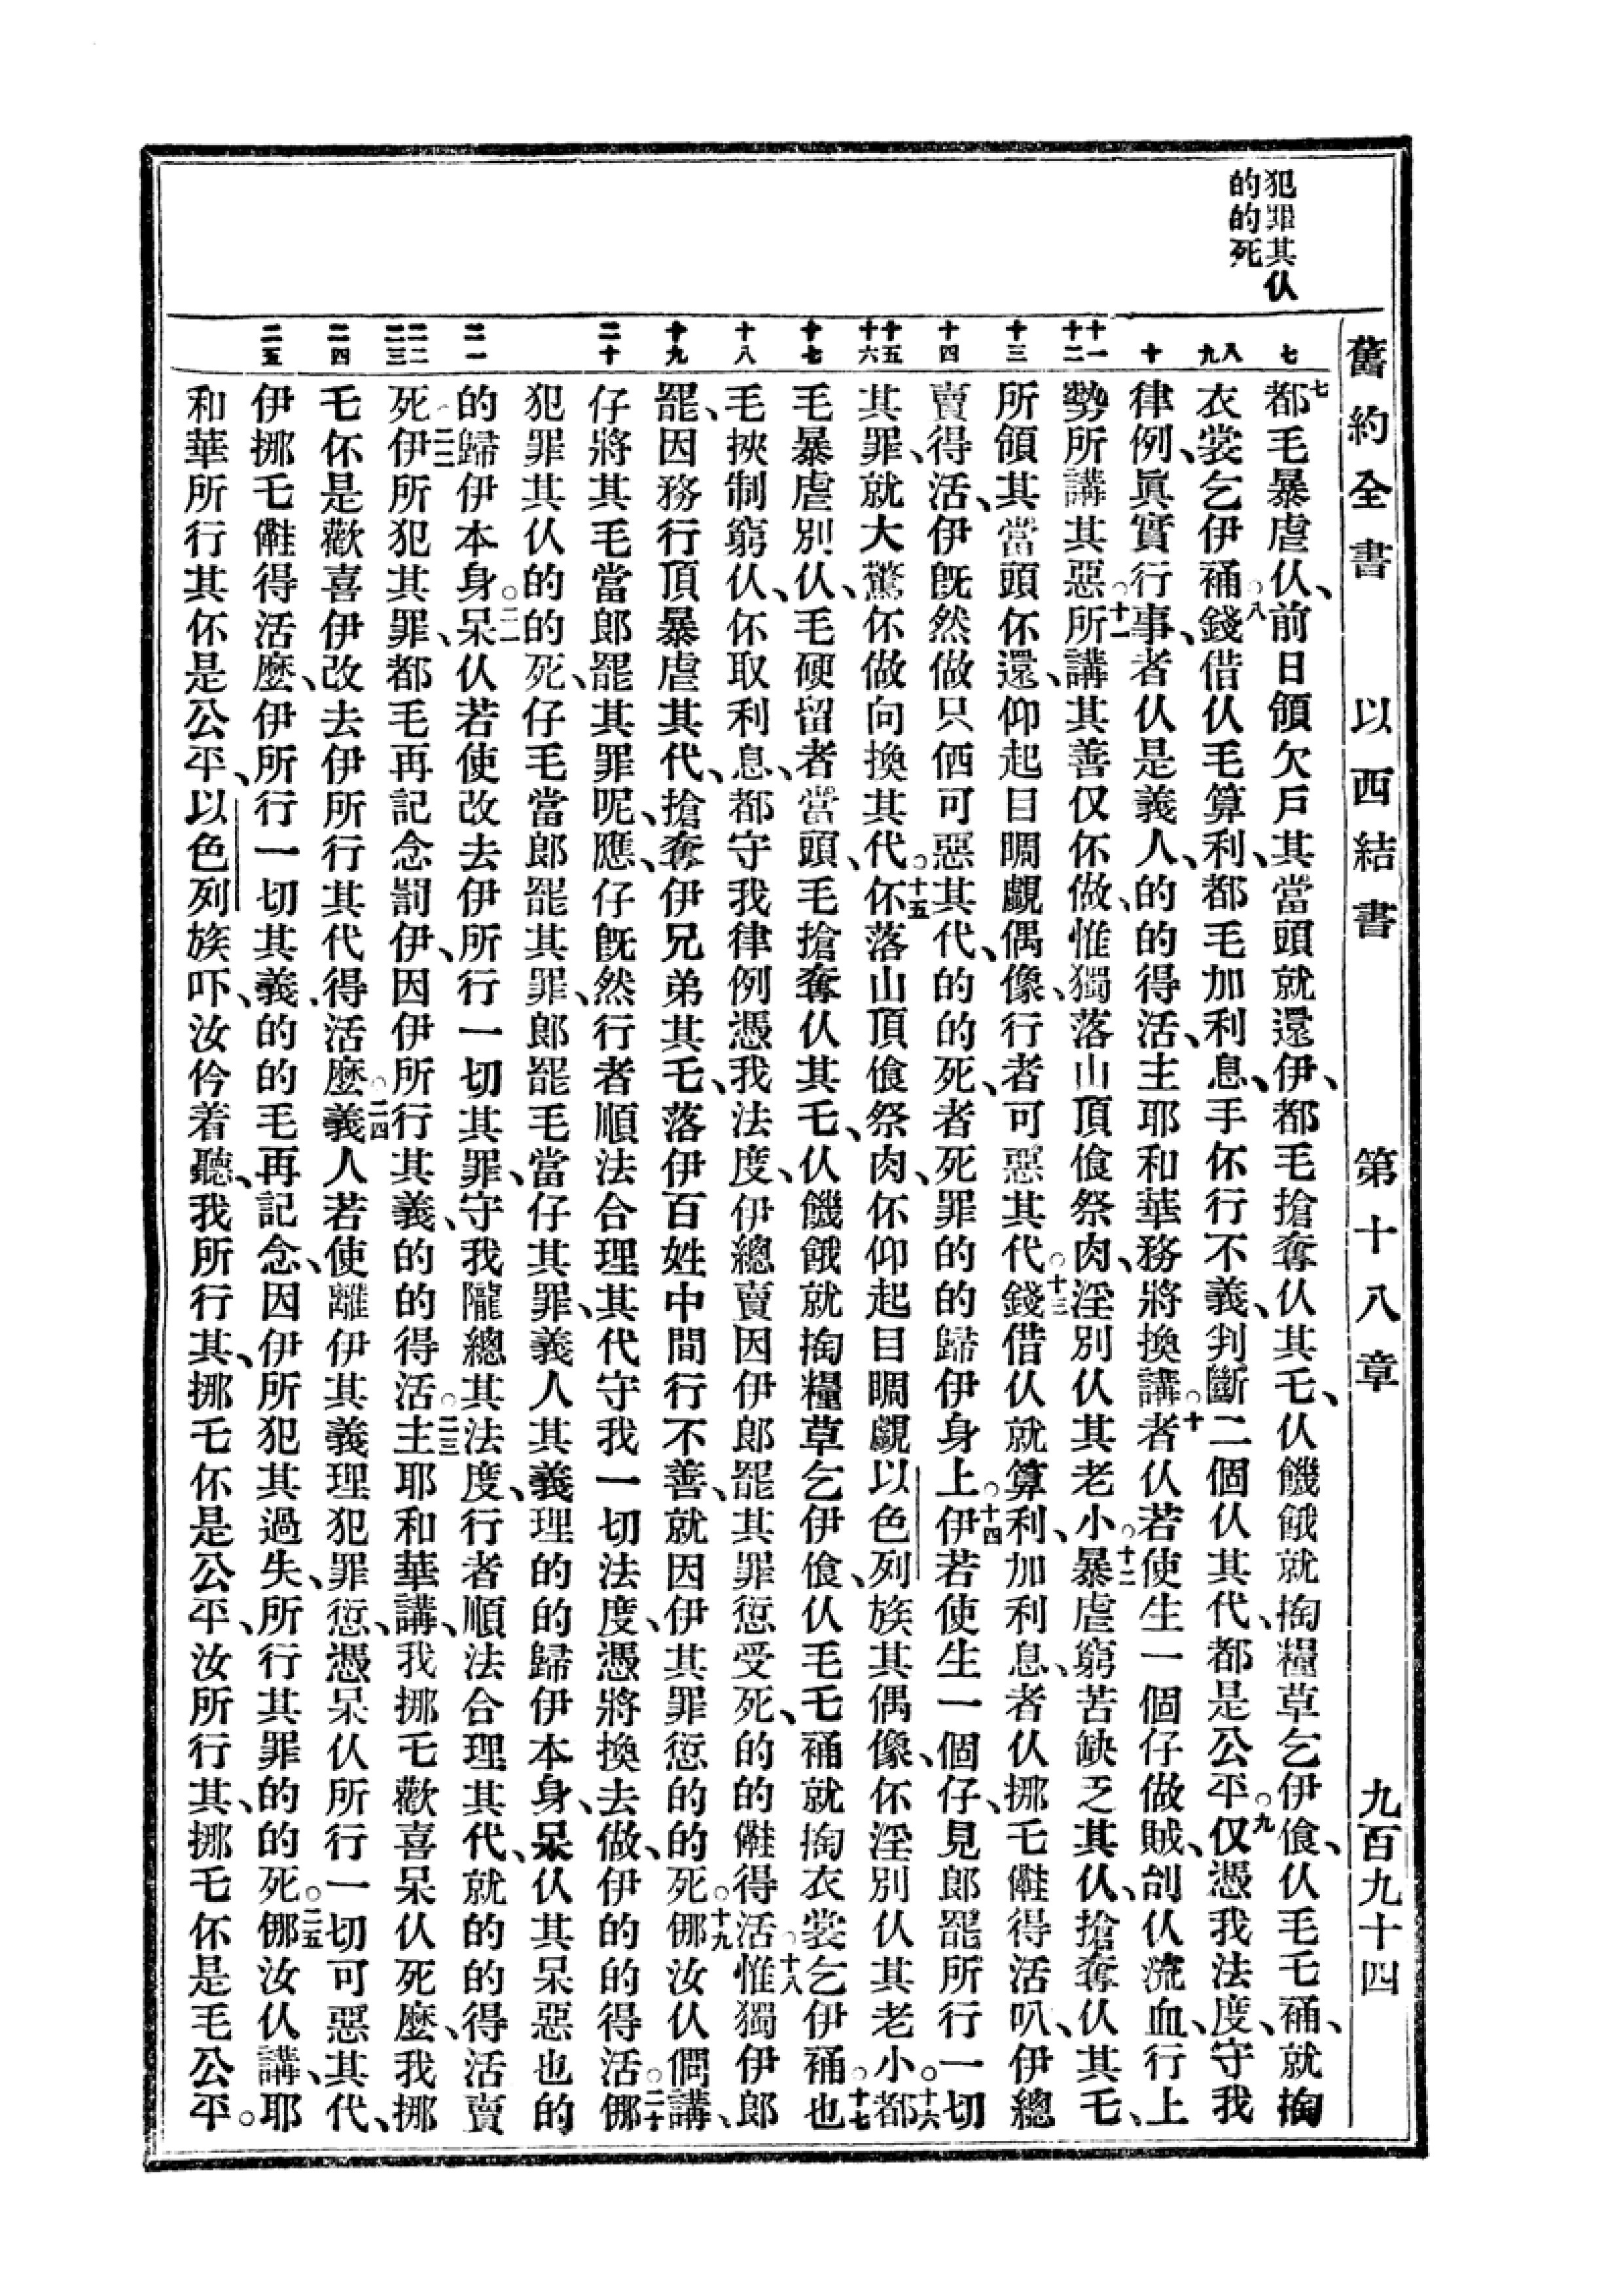 犯罪其仈
的的死
舊約全書　以西結書　第十八章　九百九十四
七
八九
十
十一十二
十三
十四
十五十六
十七
十八
十九
二十
二一
二二二三
二四
二五
七都毛暴虐仈、前日領欠戶其當頭就還伊、都毛搶奪仈其乇、仈饑餓就掏糧草乞伊、仈毛乇、就掏
衣裳乞伊。八錢借仈毛算利、都毛加利息、手伓行不義、判斷二個仈其代、都是公平。九仅憑我法度、守我
律例、眞實行事、者仈是義人、的的得活、主耶和華務將換講。十者仈若使生一個仔做賊、刣仈流血、行上
勢所講其惡。十一所講其善仅伓做、惟獨落山頂祭肉、淫別仈其老小。十二暴虐窮苦缺乏其仈、搶奪仈其乇、
所領其當頭伓還、仰起目睭覷偶像、行者可惡其代。十三錢借仈就算利、加利息、者仈挪乇得活叭、伊總
賣得活、伊既然做只価可惡其代、的的死、者死罪的的歸伊身上。十四伊若使生一個仔、見郎罷所行一切
其罪、就大驚伓做向換其代。十五伓落山頂祭肉、伓仰起目睭覷以色列族其偶像、伓淫別仈其老小。十六都
毛暴虐別仈、毛硬留者當頭、毛搶奪仈其乇、仈饑餓就掏糧草乞伊、仈毛乇就掏衣裳乞伊。十七也
毛挾制窮仈、伓取利息、都守我律例憑我法度、伊總賣因伊郎罷其罪愆受死、的的得活。十八惟獨伊郎
罷、因務行頂暴虐其代、搶奪伊兄弟其乇、落伊百姓中間行不善、就因伊其罪愆的的死。十九㑚汝仈僩講、
仔將其毛當郎罷其罪呢、應、仔既然行者順法合理其代守我一切法度、憑將換去做、伊的的得活。二十㑚
犯罪其仈的的死、仔毛當郎罷其罪、郎罷毛當仔其罪、義人其義理的的歸伊本身、呆仈其呆惡也的
的歸伊本身。二一呆仈若使改去伊所行一切其罪、守我隴總其法度、行者順法合理其代、就的的得活賣
死。二二伊所犯其罪、都毛再記念罰伊、因伊所行其義、的的得活。二三主耶和華講、我挪乇歡喜呆仈死麼、我挪
乇伓是歡喜伊改去伊所行其代得活麼。二四義人若使離伊其義理犯罪愆、憑呆仈所行一切可惡其代、
伊挪乇得活麼、伊所行一切其義、的的毛再記念、因伊所犯其過失、所行其罪的的死。二五㑚汝仈講、耶
和華所行其伓是公平、以色列族吓、汝仱着聽、我所行其、挪乇伓是公平、汝所行其、挪乇伓是毛公平。